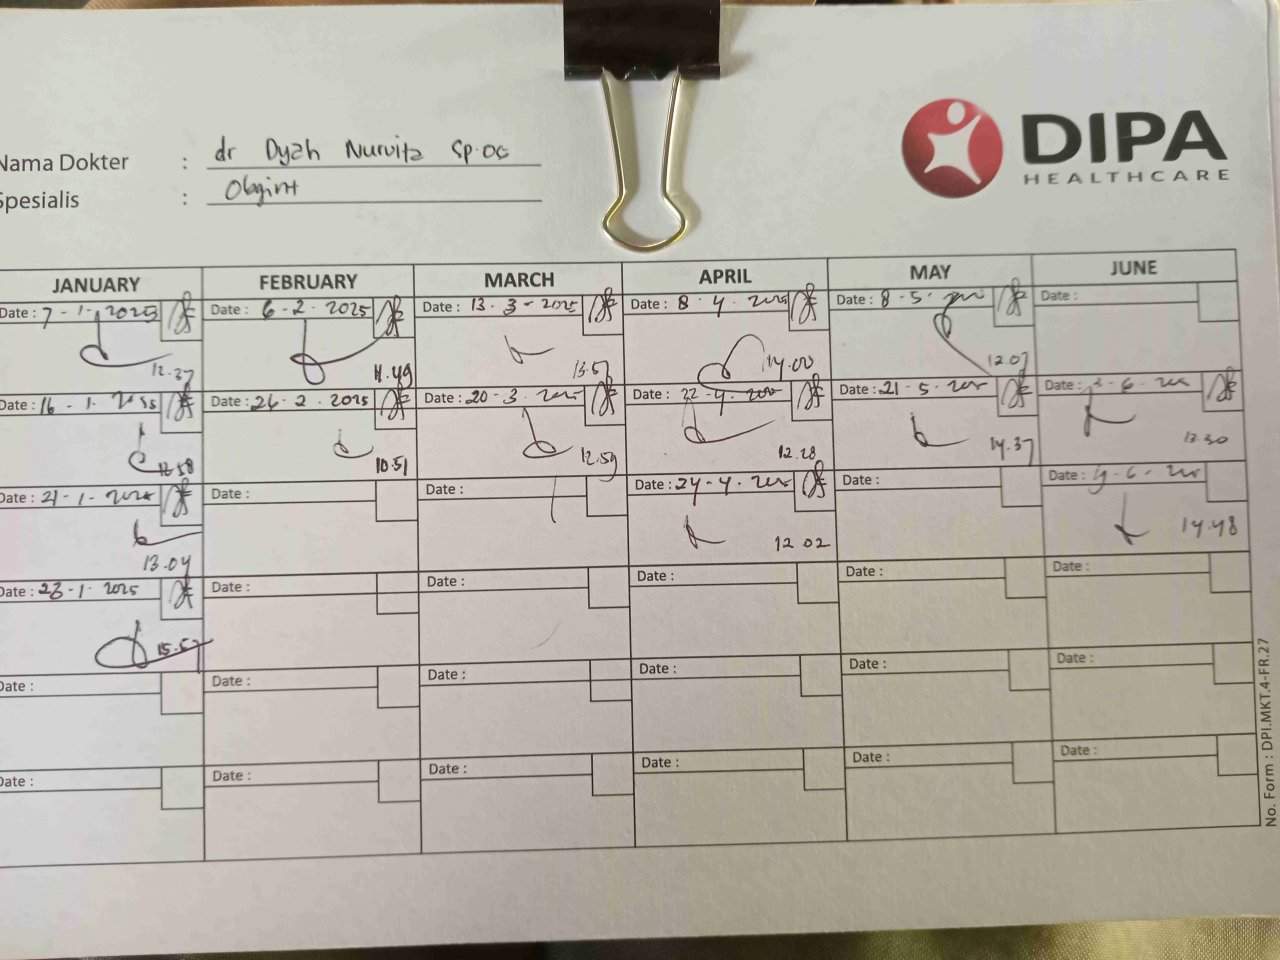 DIPA
HEALTHCARE
Nama Dokter : dr Dyah Nurvita Sp.OG
Spesialis : Obgin
JANUARY FEBRUARY MARCH APRIL MAY JUNE
Date : 7-1-2025 Date : 6-2-2025 Date : 13-3-2025 Date : 8-4-2025 Date : 8-5- Date :
12.37 11.49 13.57 14.00 12.07
Date : 16-1-2025 Date : 26-2-2025 Date : 20-3-2025 Date : 22-4-2025 Date : 21-5-2025 Date :
12.58 10.51 12.59 12.28 14.37 12.30
Date : 21-1-2025 Date : Date : Date : 24-4-2025 Date : Date :
13.04 12.02 14.48
Date : 23-1-2025 Date : Date : Date : Date : Date :
Date : Date : Date : Date : Date : Date :
Date : Date : Date : Date : Date : Date :
No. Form : DPI.MKT.4-FR.27